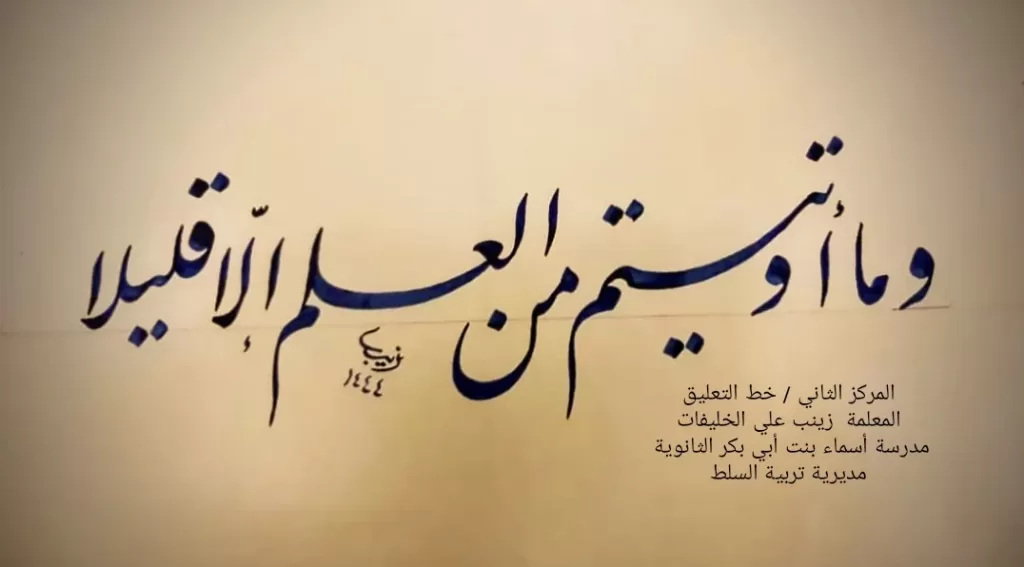 وما أوتيتم من العلم إلّا قليلا
زينب
١٤٤٤
المركز الثاني / خط التعليق
المعلمة زينب علي الخليفات
مدرسة أسماء بنت أبي بكر الثانوية
مديرية تربية السلط